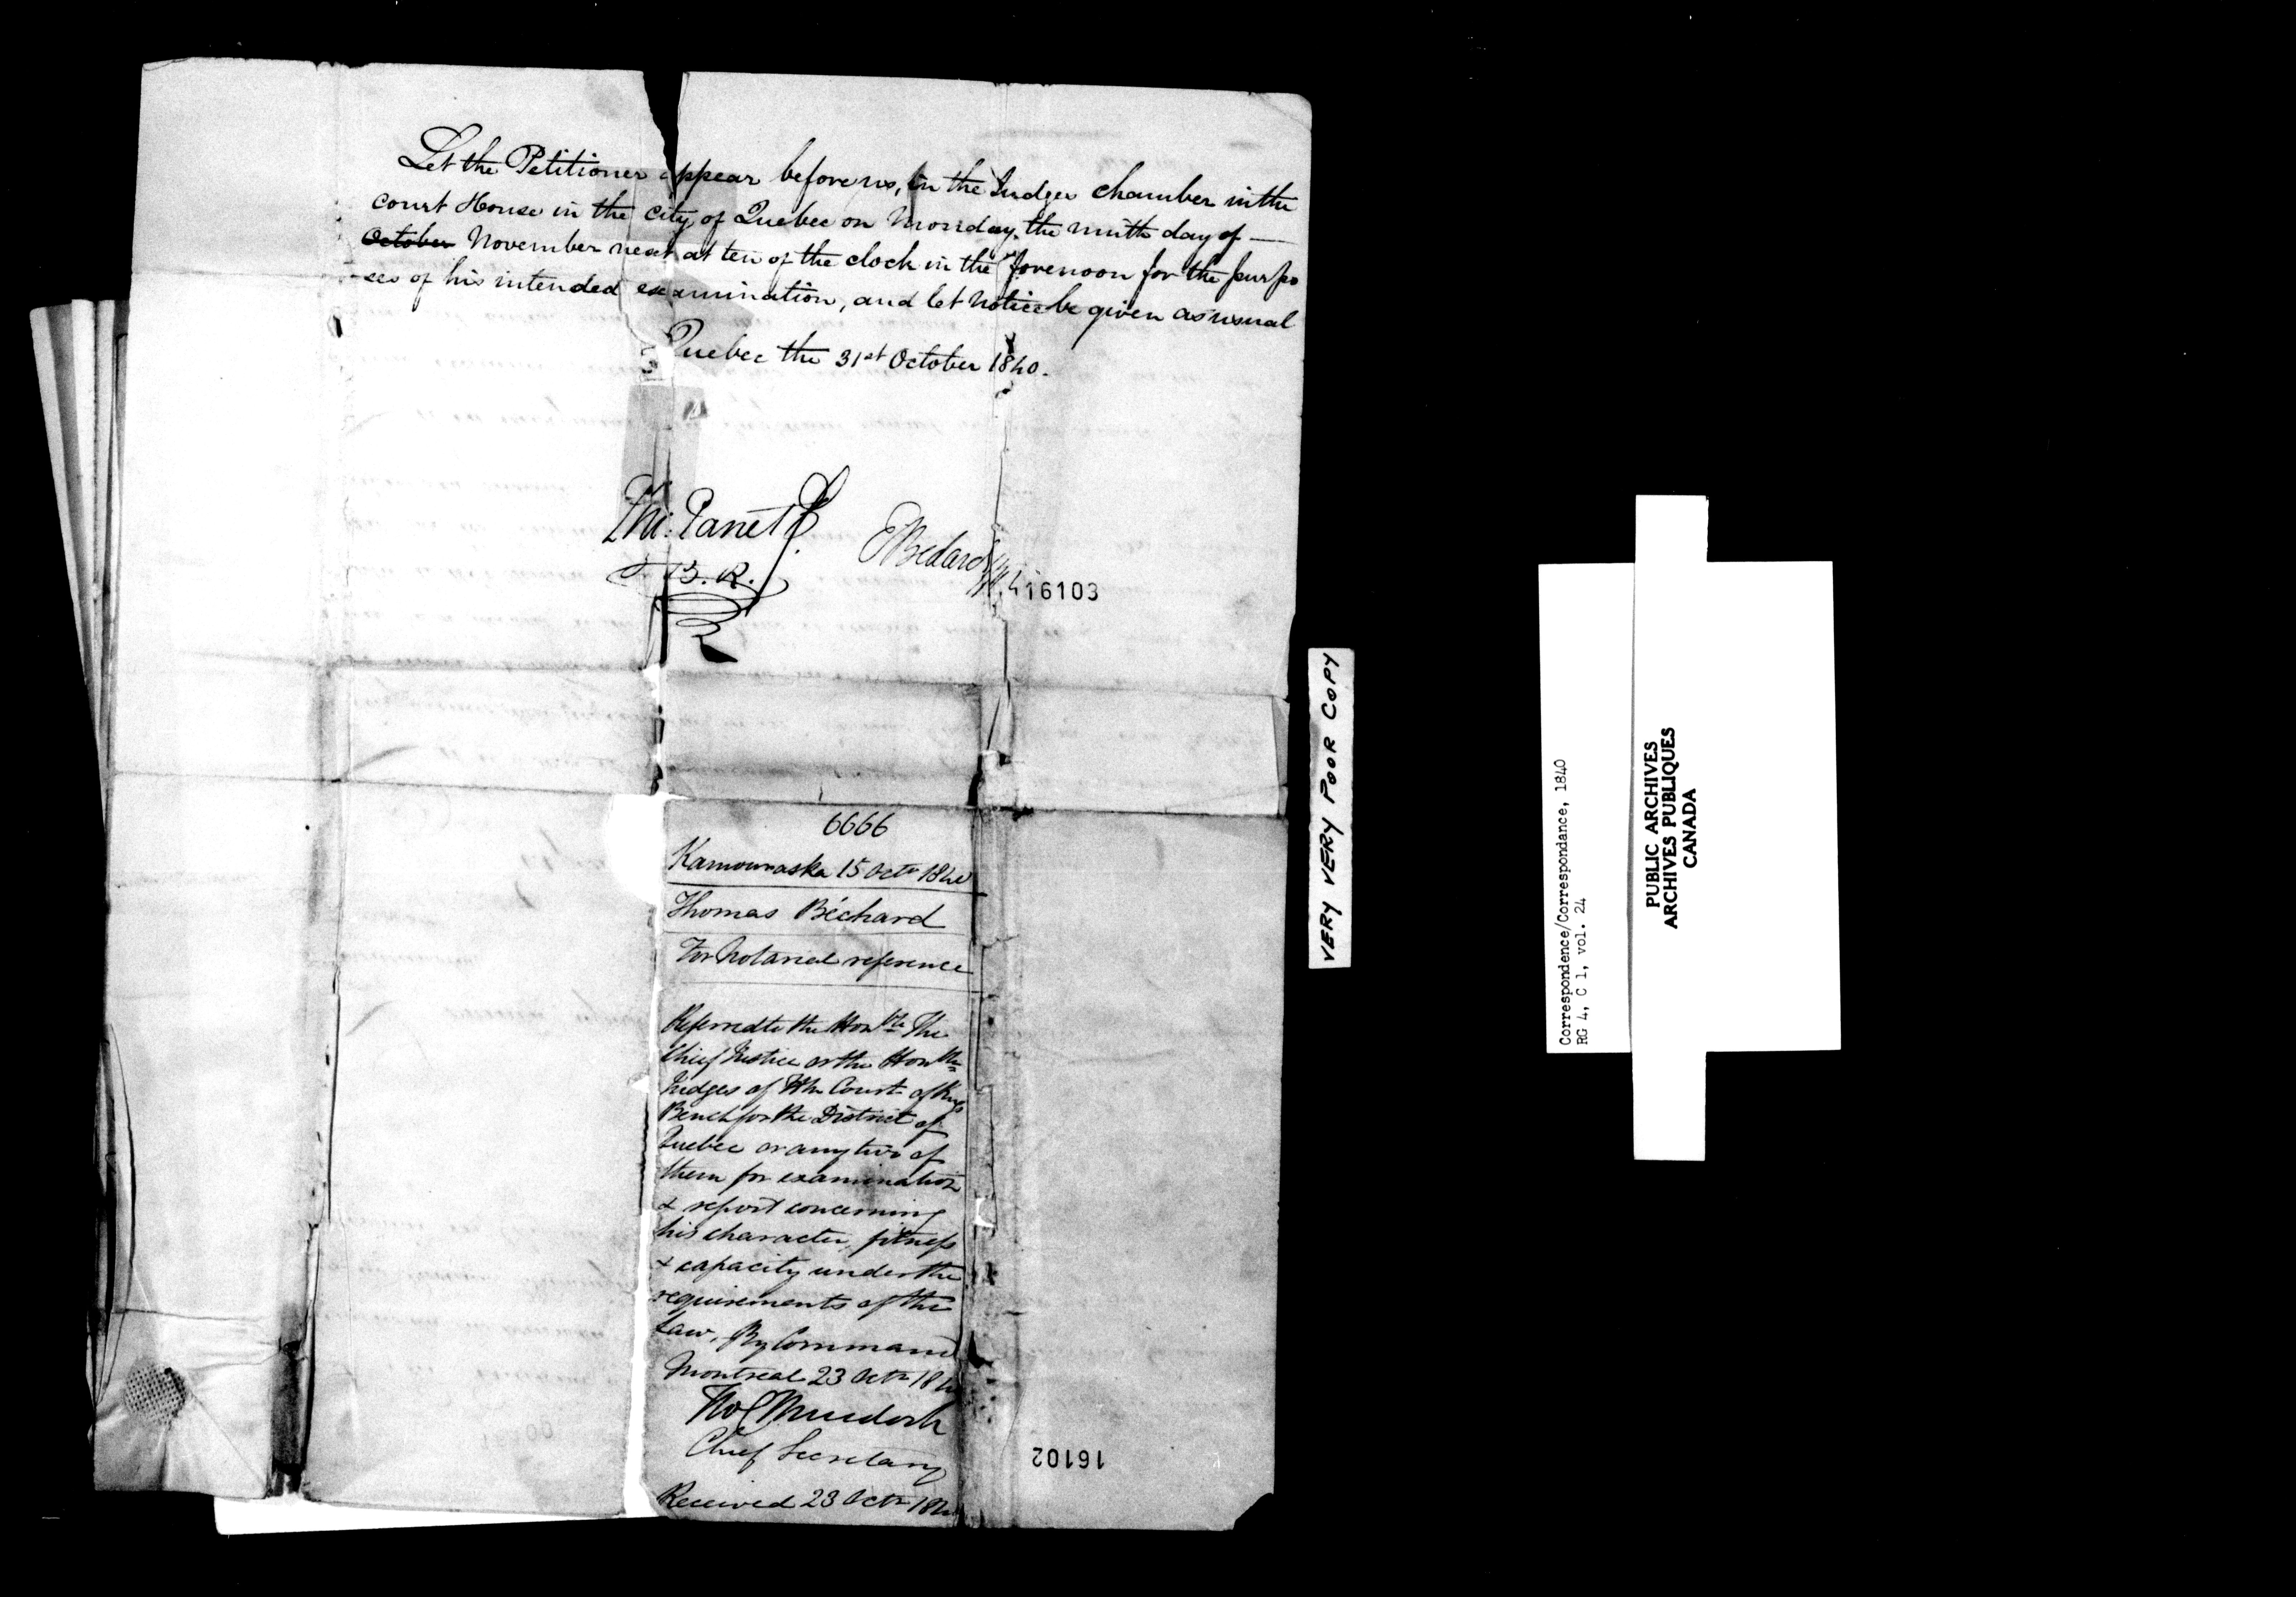 Let the Petitioner appear before us, in the Judges chamber in the
court House in the city of Quebec on Monday the ninth day of —
October November next at ten of the clock in the forenoon for the purpo
ses of his intended examination, and let notice be given as usual
Quebec the 31st October 1840.
Phi: Panet
J. B. R.
E Bedard
16103
6666
Kamouraska 15 Octr 1840
Thomas Béchard
For Notarial reference
Referred to the Honble The
Chief Justice or the Honble
Judges of the Court of Kings
Bench for the District of
Quebec or any two of
them for examination
& report concerning
his character, fitness
& capacity under the
requirements of the
Law. By Command
Montreal 23 Octr 184
Murdoch
Chief Secretary
Received 23 Octr 184
16102
VERY VERY POOR COPY
Correspondence/Correspondance, 1840
RG 4, C 1, vol. 24
PUBLIC ARCHIVES
ARCHIVES PUBLIQUES
CANADA